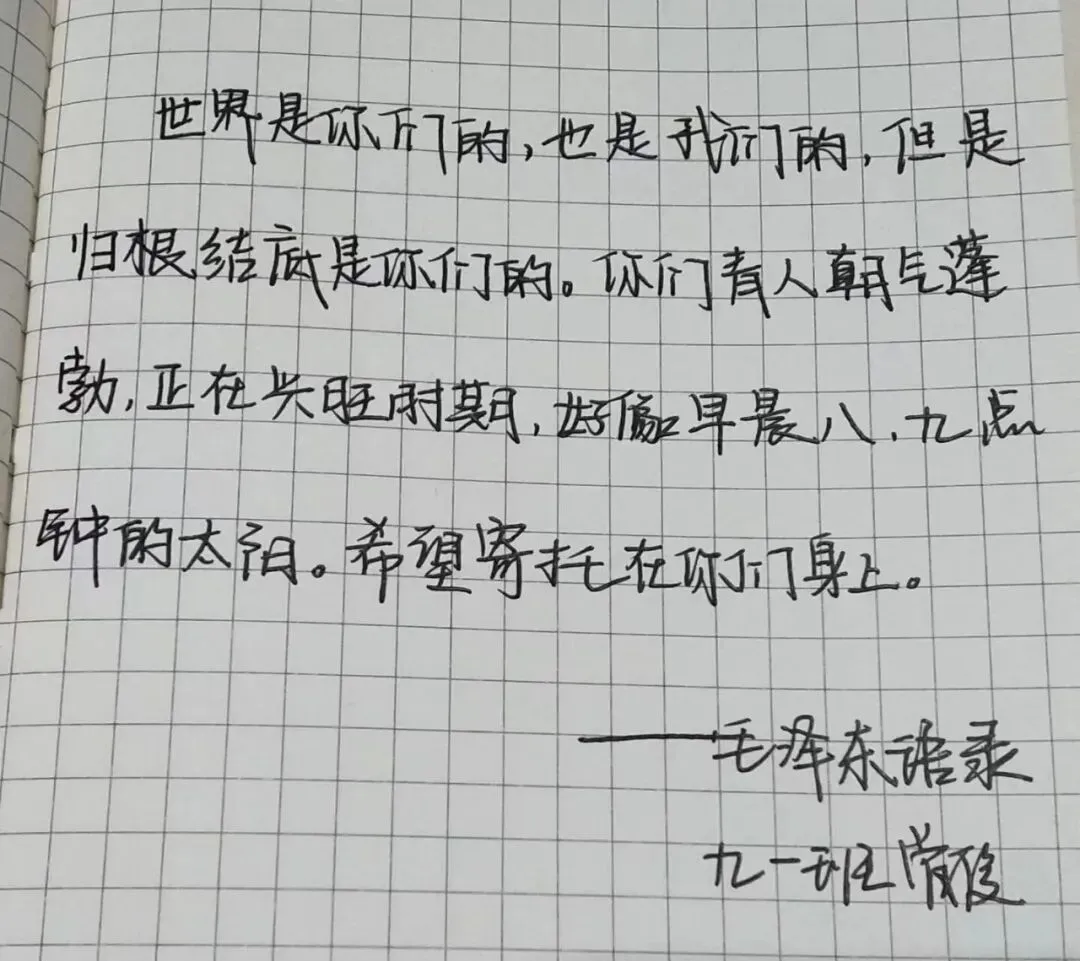 世界是你们的,也是我们的,但是
归根结底是你们的。你们青人朝气蓬
勃,正在兴旺时期,好像早晨八、九点
钟的太阳。希望寄托在你们身上。
——毛泽东语录
九一班